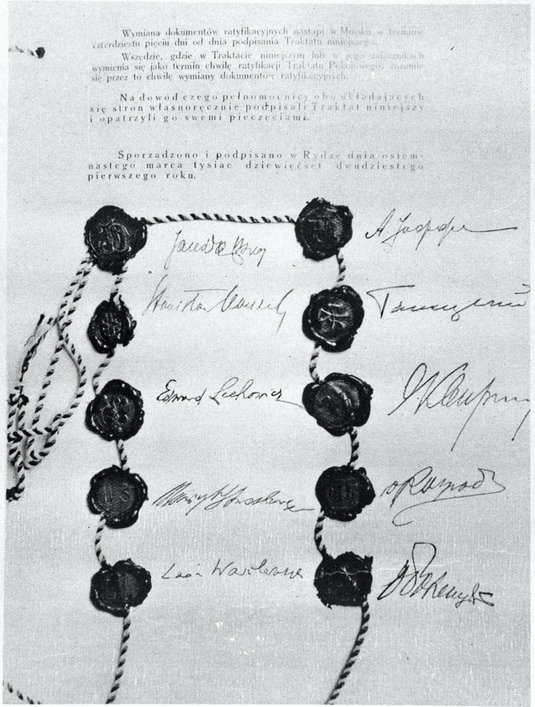 Wymiana dokumentów ratyfikacyjnych nastąpi w Mińsku w terminie
czterdziestu pięciu dni od dnia podpisania Traktatu niniejszego.
Wszędzie, gdzie w Traktacie niniejszym lub w jego załącznikach
wymienia się jako termin chwilę ratyfikacji Traktatu Pokojowego, rozumie
się przez to chwilę wymiany dokumentów ratyfikacyjnych.
Na dowód czego pełnomocnicy obu układających
się stron własnoręcznie podpisali Traktat niniejszy
i opatrzyli go swemi pieczęciami.
Sporządzono i podpisano w Rydze dnia osiem-
nastego marca tysiąc dziewięćset dwudziestego
pierwszego roku.
Jan Dąbski
А Іоффе
Edward Lechowicz
Leon Wasilewski